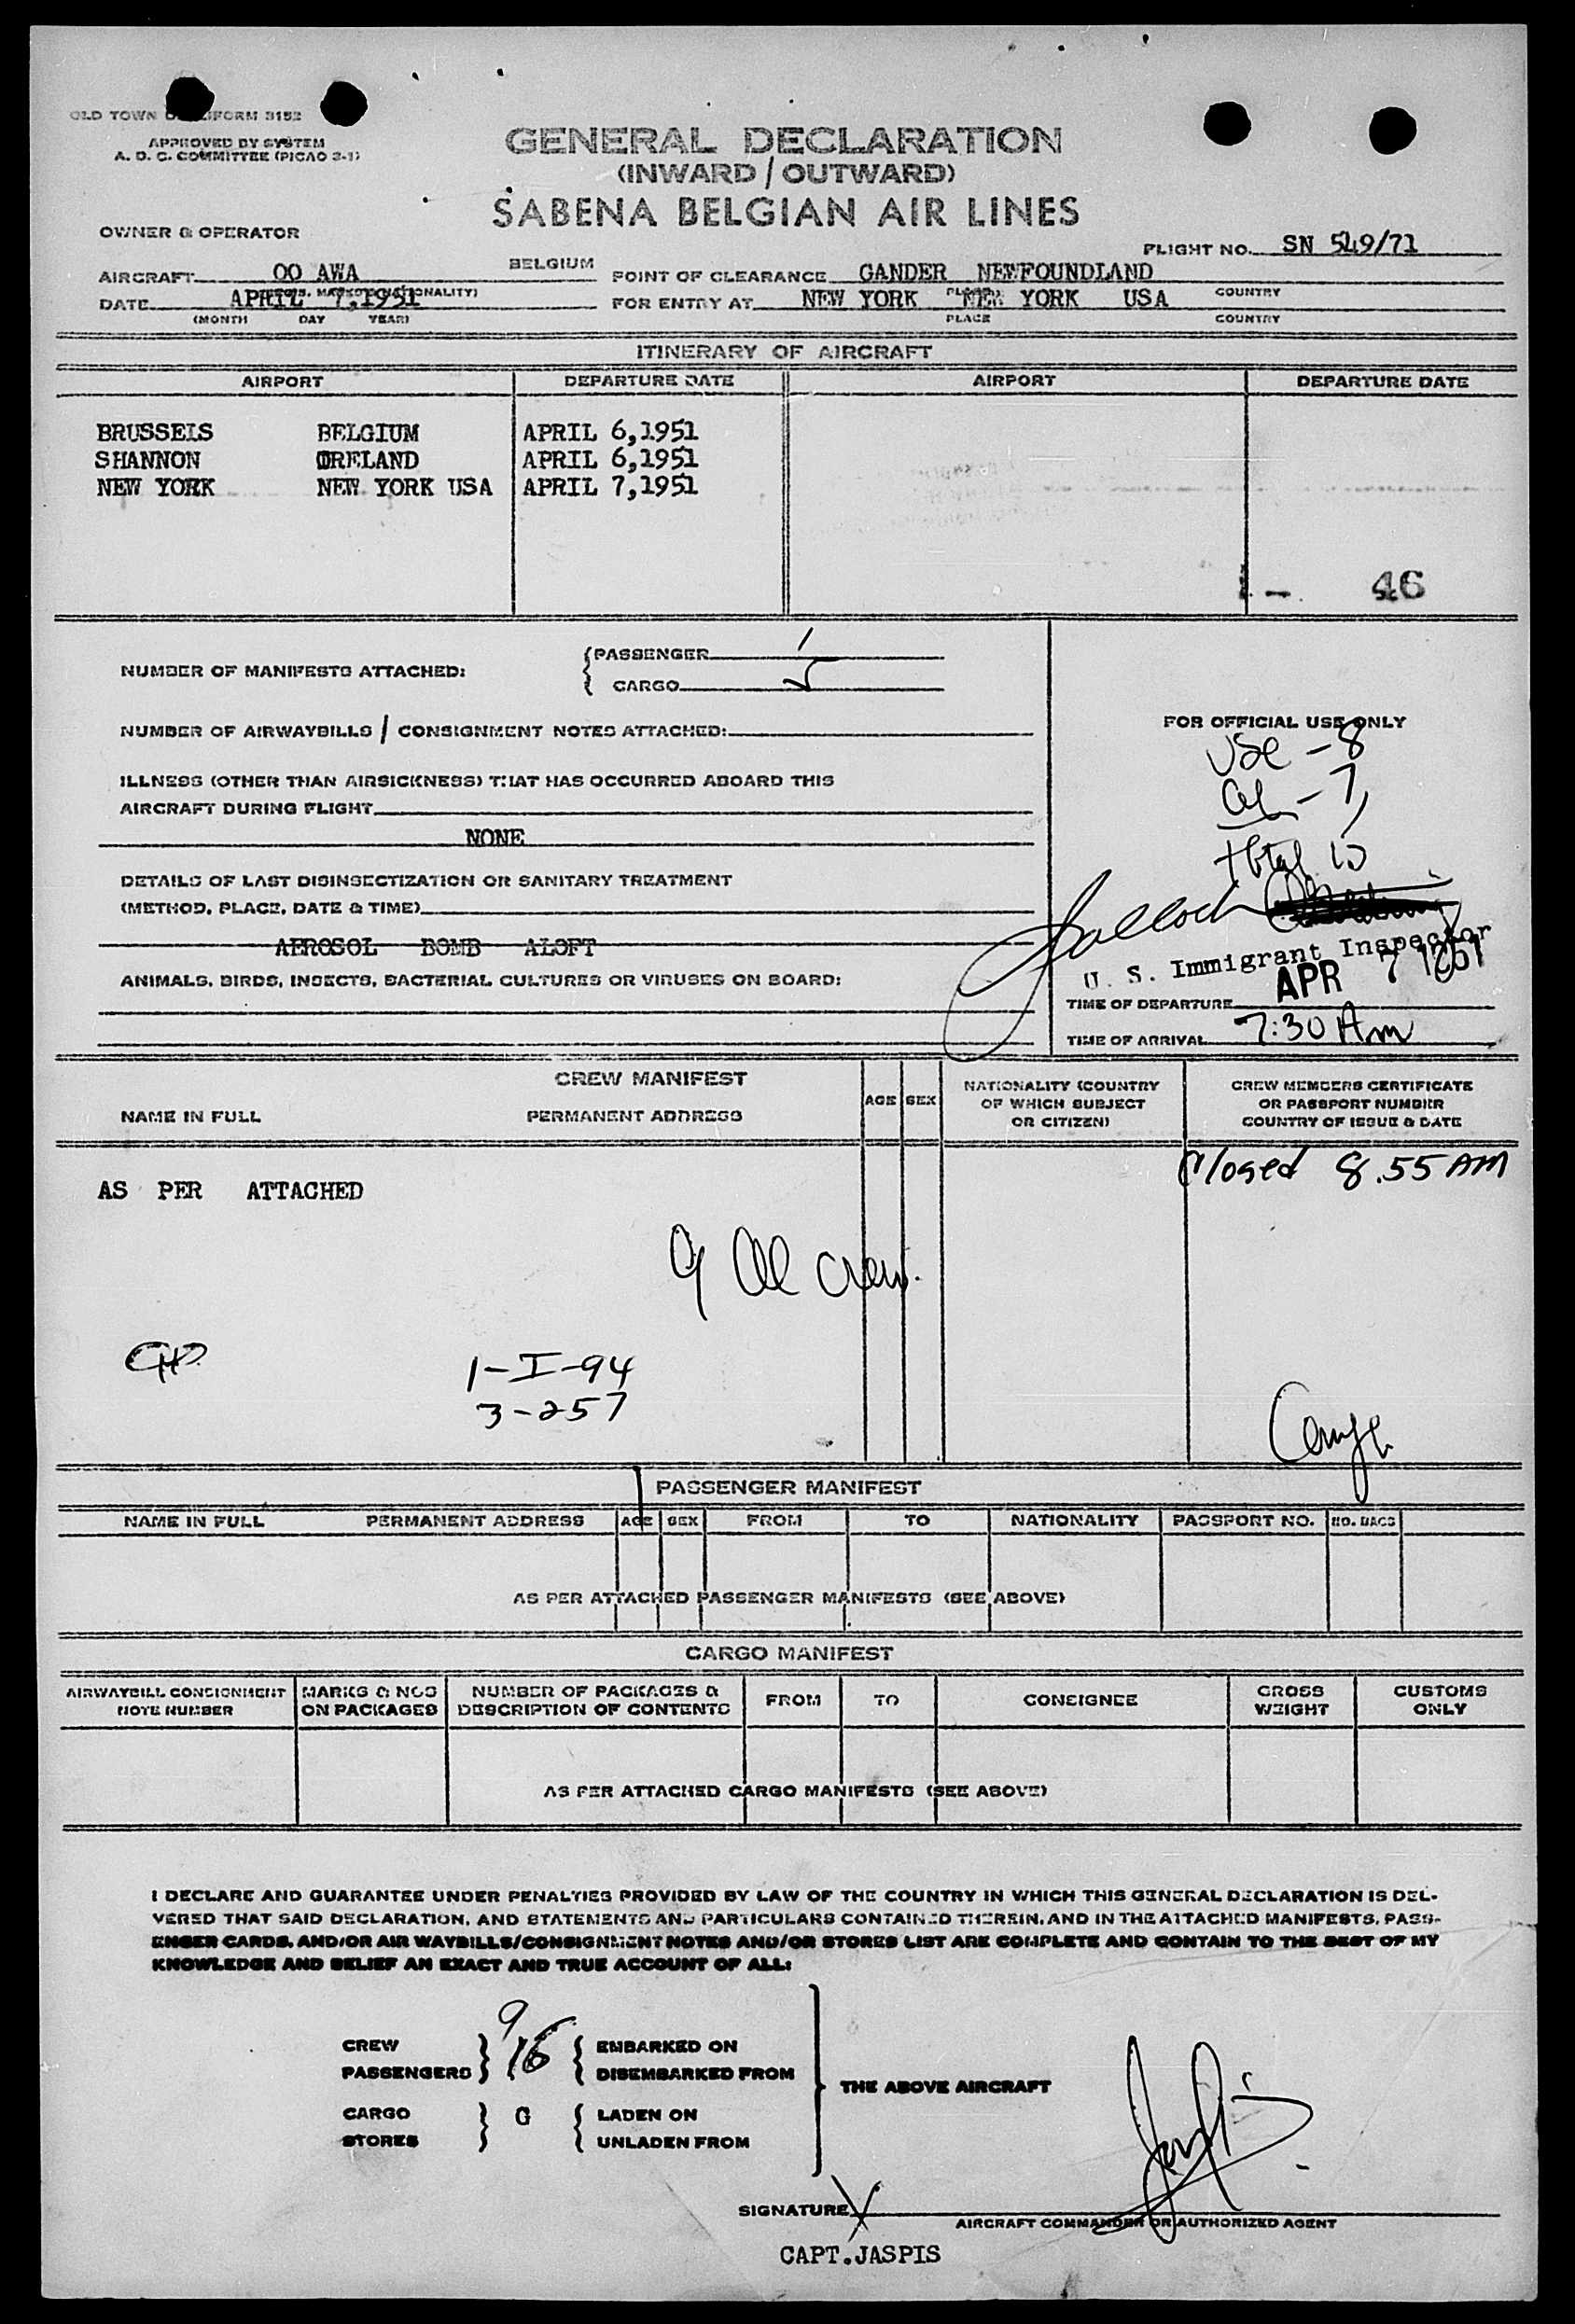 OLD TOWN UNIFORM 3152
APPROVED BY SYSTEM
A. O. C. COMMITTEE (PICAO 2-1)
GENERAL DECLARATION
(INWARD / OUTWARD)
SABENA BELGIAN AIR LINES
OWNER & OPERATOR
FLIGHT NO. SN 549/71
AIRCRAFT OO AWA BELGIUM POINT OF CLEARANCE GANDER NEWFOUNDLAND
NATIONALITY) PLACE COUNTRY
DATE APRIL 7,1951 FOR ENTRY AT NEW YORK NEW YORK USA
(MONTH DAY YEAR) PLACE COUNTRY
ITINERARY OF AIRCRAFT
AIRPORT DEPARTURE DATE AIRPORT DEPARTURE DATE
BRUSSELS BELGIUM APRIL 6,1951
SHANNON IRELAND APRIL 6,1951
NEW YORK NEW YORK USA APRIL 7,1951
46
NUMBER OF MANIFESTS ATTACHED: PASSENGER 1
CARGO 5
NUMBER OF AIRWAYBILLS / CONSIGNMENT NOTES ATTACHED:
ILLNESS (OTHER THAN AIRSICKNESS) THAT HAS OCCURRED ABOARD THIS
AIRCRAFT DURING FLIGHT
NONE
DETAILS OF LAST DISINSECTIZATION OR SANITARY TREATMENT
(METHOD, PLACE, DATE & TIME)
AEROSOL BOMB ALOFT
ANIMALS, BIRDS, INSECTS, BACTERIAL CULTURES OR VIRUSES ON BOARD:
FOR OFFICIAL USE ONLY
USC - 8
al - 7
total 15
U. S. Immigrant Inspector
APR 7 1951
TIME OF DEPARTURE
TIME OF ARRIVAL 7:30 Am
CREW MANIFEST
NAME IN FULL PERMANENT ADDRESS AGE SEX NATIONALITY (COUNTRY OF WHICH SUBJECT OR CITIZEN) CREW MEMBERS CERTIFICATE OR PASSPORT NUMBER COUNTRY OF ISSUE & DATE
Closed 8.55 AM
AS PER ATTACHED
9 al crew.
1-I-94
3-257
PASSENGER MANIFEST
NAME IN FULL PERMANENT ADDRESS AGE SEX FROM TO NATIONALITY PASSPORT NO. NO. BAGS
AS PER ATTACHED PASSENGER MANIFESTS (SEE ABOVE)
CARGO MANIFEST
AIRWAYBILL CONSIGNMENT NOTE NUMBER MARKS & NOS ON PACKAGES NUMBER OF PACKAGES & DESCRIPTION OF CONTENTS FROM TO CONSIGNEE GROSS WEIGHT CUSTOMS ONLY
AS PER ATTACHED CARGO MANIFESTS (SEE ABOVE)
I DECLARE AND GUARANTEE UNDER PENALTIES PROVIDED BY LAW OF THE COUNTRY IN WHICH THIS GENERAL DECLARATION IS DEL-
VERED THAT SAID DECLARATION, AND STATEMENTS AND PARTICULARS CONTAINED THEREIN, AND IN THE ATTACHED MANIFESTS, PASS-
ENGER CARDS, AND/OR AIR WAYBILLS/CONSIGNMENT NOTES AND/OR STORES LIST ARE COMPLETE AND CONTAIN TO THE BEST OF MY
KNOWLEDGE AND BELIEF AN EXACT AND TRUE ACCOUNT OF ALL:
CREW 9 EMBARKED ON
PASSENGERS 16 DISEMBARKED FROM
THE ABOVE AIRCRAFT
CARGO G LADEN ON
STORES UNLADEN FROM
SIGNATURE X
AIRCRAFT COMMANDER OR AUTHORIZED AGENT
CAPT.JASPIS